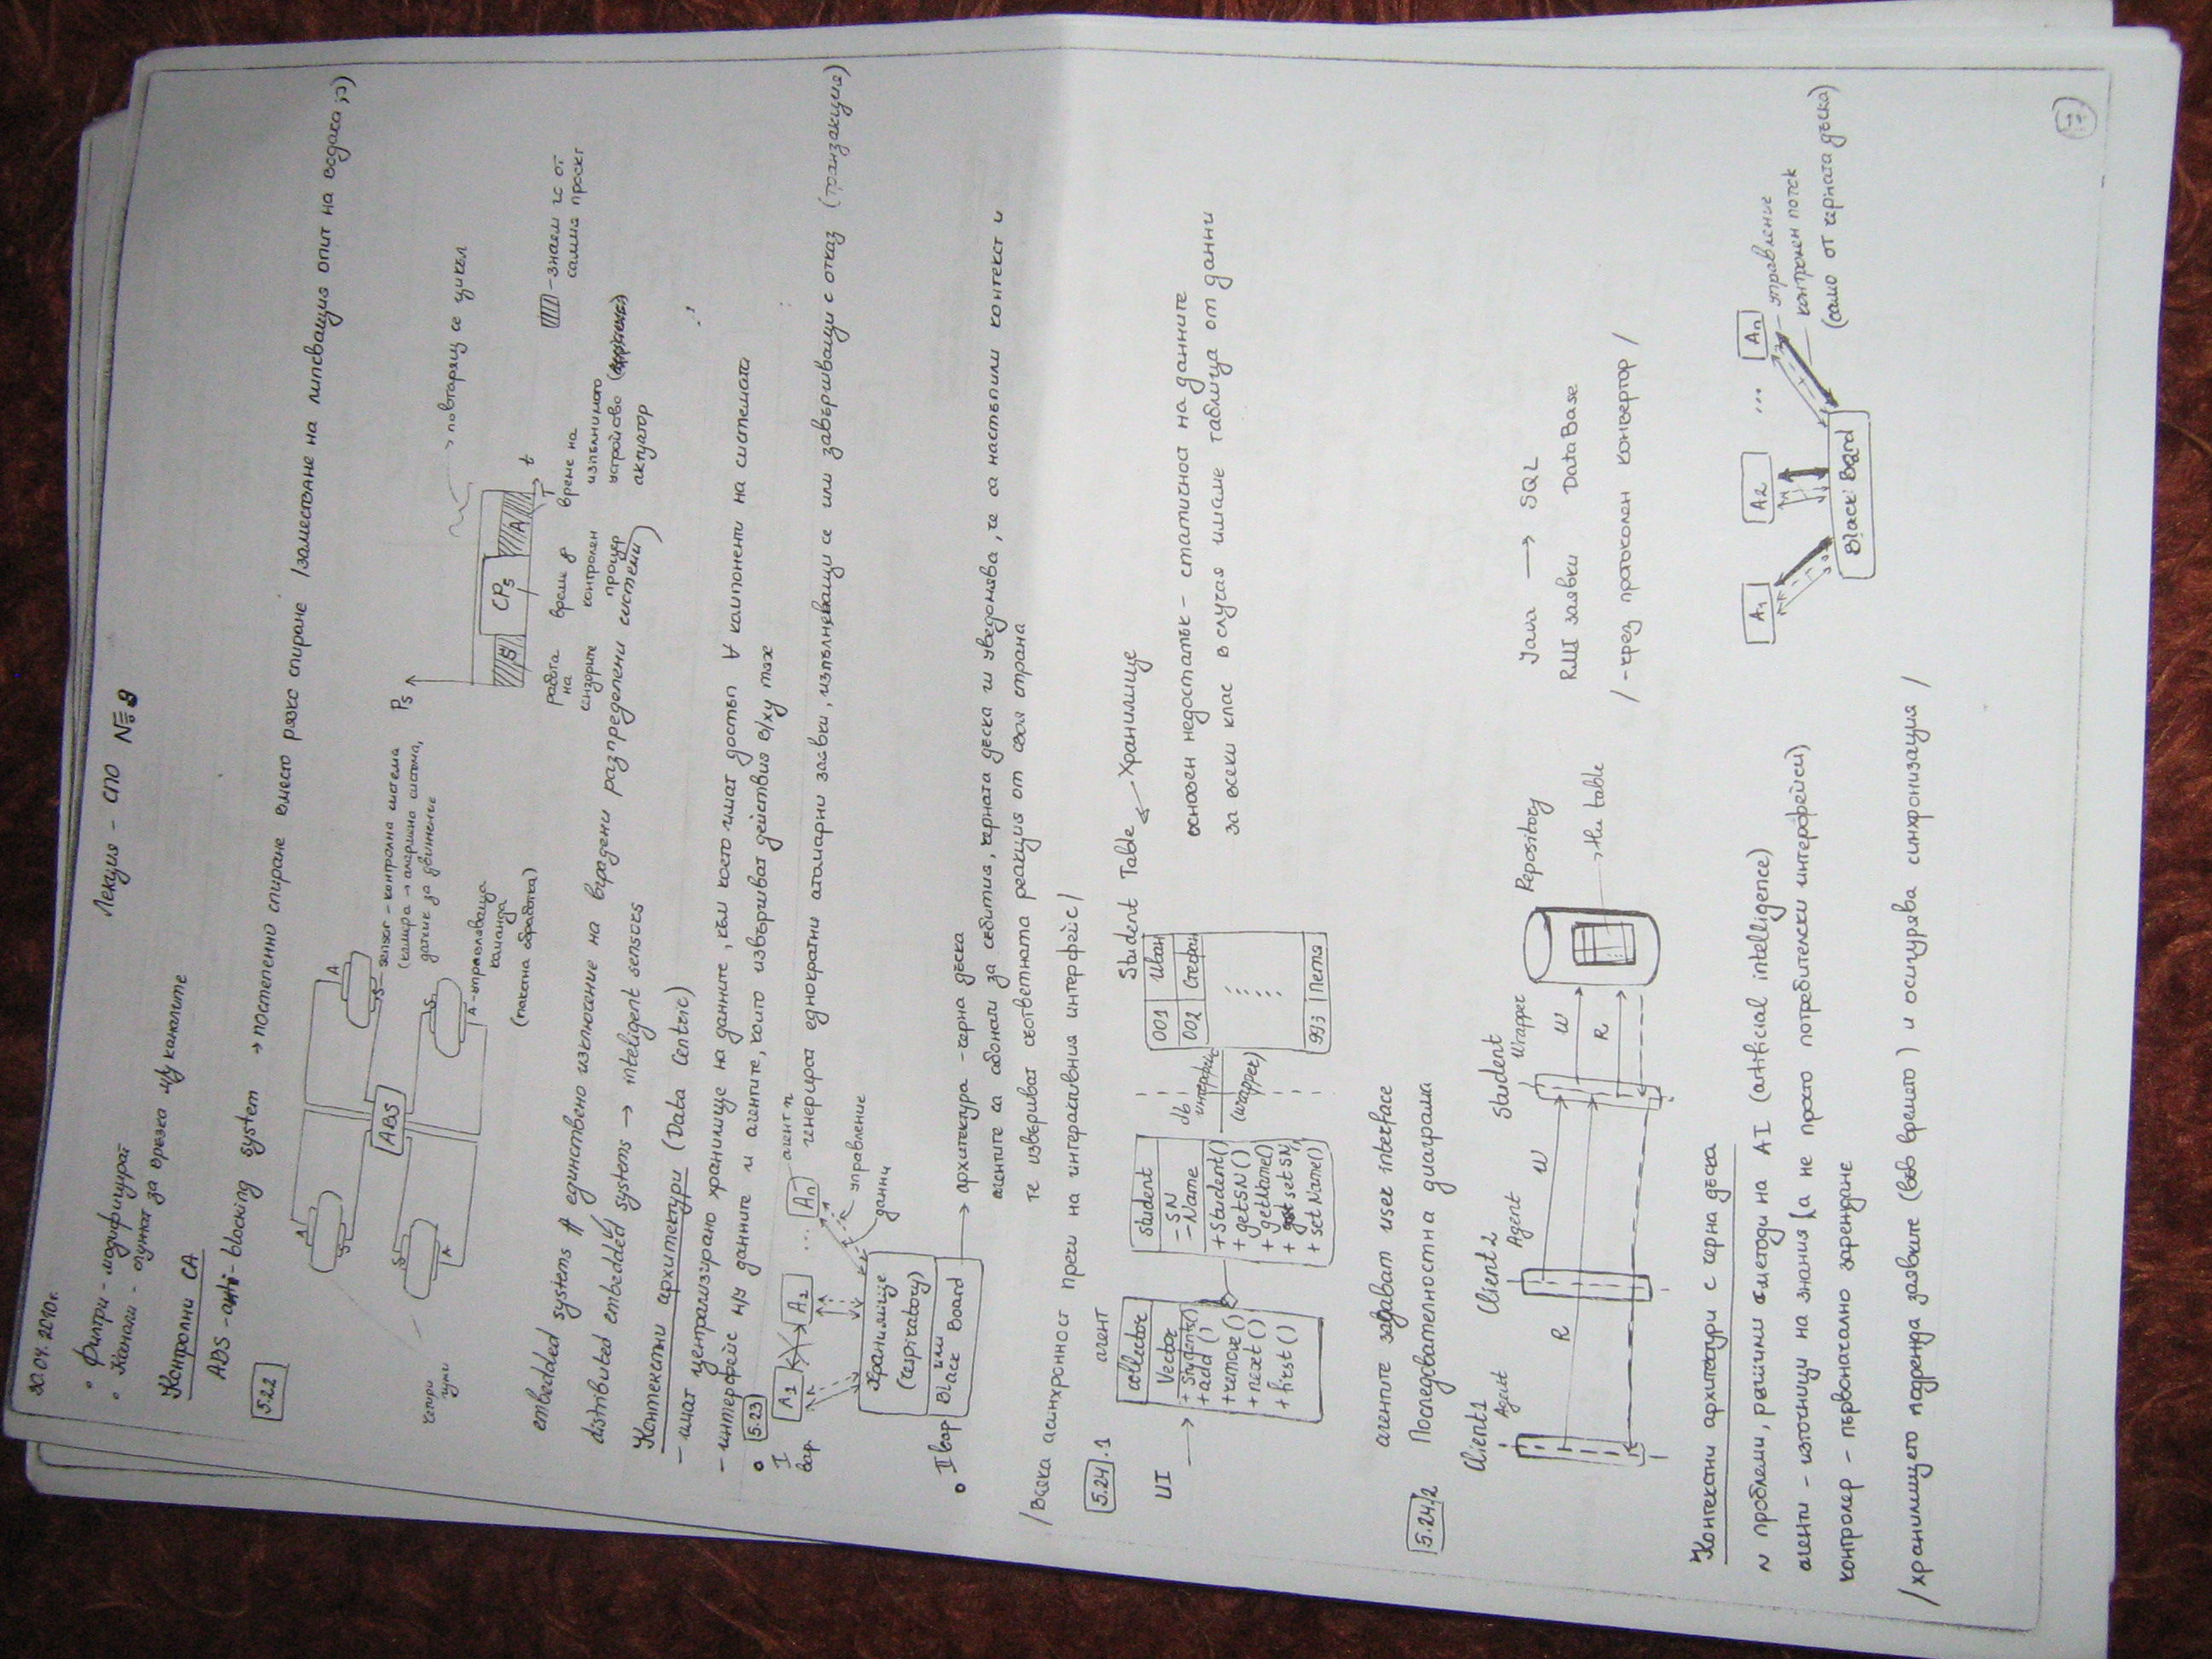 30.04.2010г.
Лекция - СПО №8
• Филтри - модифицират
• Канали - служат за връзка м/у каналите
Контролни СА
ABS - anti-blocking system → постепенно спиране вместо рязко спиране /заместване на липсващия опит на водача ;р)
5.22
ABS
A
S
A
S
S
A
S
A - управляваща
команда
(тяхната обработка)
sensor - контролна система
(камера → алармена система,
датчик за движение
четири
гуми
Ps
S
CPs
A
t
→ повтарящ се цикъл
- знаем го от
самия проект
работа
на
сензорите
време в
контролен
процес
време на
изпълнимото
устройство
актуатор
embedded systems # единствено изключване на вградени разпределени системи)
distributed embedded systems → inteligent sensors
Контекстни архитектури (Data Centric)
- имат централизирано хранилище на данните, към което имат достъп ∀ компоненти на системата
- интерфейс м/у данните и агентите, които извършват действия в/ху тях
• 5.23
I
вар.
A1
A2
...
An
агент n
генерират еднократни атомарни заявки, изпълняващи се или завършващи с отказ (транзакция)
управление
данни
Хранилище
(respiratory)
или
Black Board
• II вар
→ архитектура - черна дъска
агентите са абонати за събития, черната дъска ги уведомява, че са настъпили контекст и
те извършват съответната реакция от своя страна
/Всяка асинхронност пречи на интерактивния интерфейс/
5.24.1
агент
UI
collector
Vector
+ Students()
+ add ()
+ remove ()
+ next ()
+ first ()
Student
- SN
- Name
+ Student()
+ getSN ()
+ getName()
+ set SN
+ set Name()
db
интерфейс
(wrapper)
Student Table ← Хранилище
001 Иван
002 Стефан
993 Петя
основен недостатък - статичност на данните
за всеки клас в случая имаме таблица от данни
агентите задават user interface
5.24.2
Последователностна диаграма
Client1
Agent
Client 2
Agent
Student
Wrapper
Repository
R
W
W
R
→ the table
Java → SQL
RMI заявки DataBase
/ - чрез протоколен конвертор /
Контекстни архитектури с черна дъска
~ проблеми, решими с методи на AI (artificial intelligence)
агенти - източници на знания (а не просто потребителски интерфейси)
контролер - първоначално зареждане
/хранилището подрежда заявките (във времето) и осигурява синхронизация /
A1
A2
...
An
Black Board
управление
контролен поток
(само от черната дъска)
17